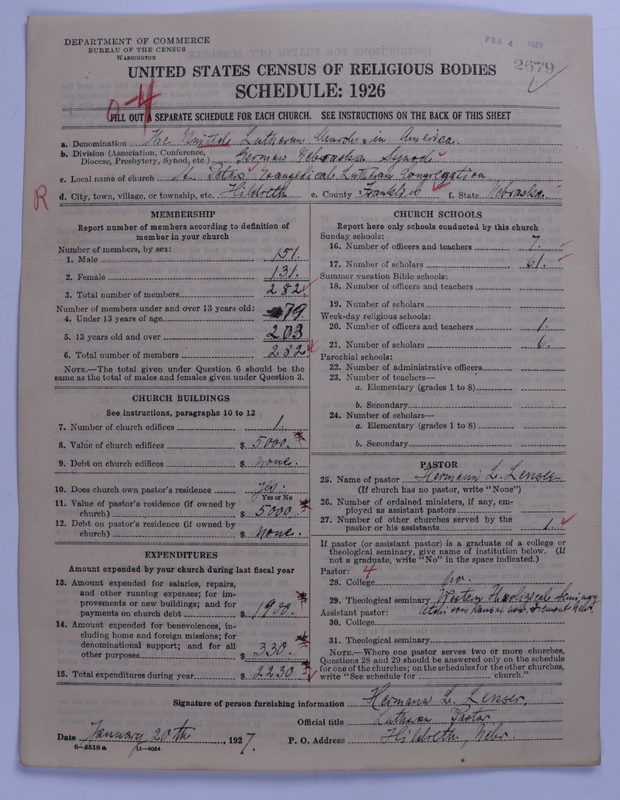 DEPARTMENT OF COMMERCE
BUREAU OF THE CENSUS
WASHINGTON
FEB 4 1927
2679
UNITED STATES CENSUS OF RELIGIOUS BODIES
SCHEDULE: 1926
0-4
FILL OUT A SEPARATE SCHEDULE FOR EACH CHURCH. SEE INSTRUCTIONS ON THE BACK OF THIS SHEET
a. Denomination The United Lutheran Church in America.
b. Division (Association, Conference, Diocese, Presbytery, Synod, etc.) German Nebraska Synod
c. Local name of church St. Peters Evangelical Lutheran Congregation
R
d. City, town, village, or township, etc. Hildreth e. County Franklin f. State Nebraska.
MEMBERSHIP
Report number of members according to definition of member in your church
Number of members, by sex:
1. Male 151.
2. Female 131.
3. Total number of members 282
Number of members under and over 13 years old:
4. Under 13 years of age 79
5. 13 years old and over 203
6. Total number of members 282
NOTE.—The total given under Question 6 should be the same as the total of males and females given under Question 3.
CHURCH BUILDINGS
See instructions, paragraphs 10 to 12
7. Number of church edifices 1.
8. Value of church edifices $ 5000.
9. Debt on church edifices $ none.
10. Does church own pastor's residence yes.
Yes or No
11. Value of pastor's residence (if owned by church) $ 5000.
12. Debt on pastor's residence (if owned by church) $ none.
EXPENDITURES
Amount expended by your church during last fiscal year
13. Amount expended for salaries, repairs, and other running expenses; for improvements or new buildings; and for payments on church debt $ 1900.
14. Amount expended for benevolences, including home and foreign missions; for denominational support; and for all other purposes $ 330.
15. Total expenditures during year $ 2230
CHURCH SCHOOLS
Report here only schools conducted by this church
Sunday schools:
16. Number of officers and teachers 7.
17. Number of scholars 61.
Summer vacation Bible schools:
18. Number of officers and teachers
19. Number of scholars
Week-day religious schools:
20. Number of officers and teachers 1.
21. Number of scholars 6.
Parochial schools:
22. Number of administrative officers
23. Number of teachers—
a. Elementary (grades 1 to 8)
b. Secondary
24. Number of scholars—
a. Elementary (grades 1 to 8)
b. Secondary
PASTOR
25. Name of pastor Hermann L. Lenser
(If church has no pastor, write "None")
26. Number of ordained ministers, if any, employed as assistant pastors
27. Number of other churches served by the pastor or his assistants 1.
If pastor (or assistant pastor) is a graduate of a college or theological seminary, give name of institution below. (If not a graduate, write "No" in the space indicated.)
Pastor: 4
28. College no.
29. Theological seminary Western Theological Seminary
Assistant pastor: Atchison Kansas Fremont Nebr.
30. College
31. Theological seminary
NOTE.—Where one pastor serves two or more churches, Questions 28 and 29 should be answered only on the schedule for one of the churches; on the schedules for the other churches, write "See schedule for church."
Signature of person furnishing information Hermann L. Lenser.
Official title Lutheran Pastor
Date January 20th, 1927. P. O. Address Hildreth, Nebr.
8—5518 a 11—9064